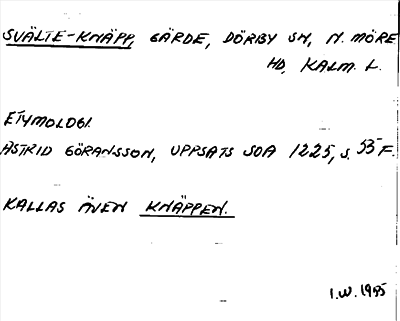 SVÄLTE-KNÄPP, GÄRDE, DÖRBY SN, N. MÖRE
HD, KALM. L.
ETYMOLOGI.
ASTRID GÖRANSSON, UPPSATS SOA 1225, S. 55 F.
KALLAS ÄVEN KNÄPPEN.
I.W. 1955